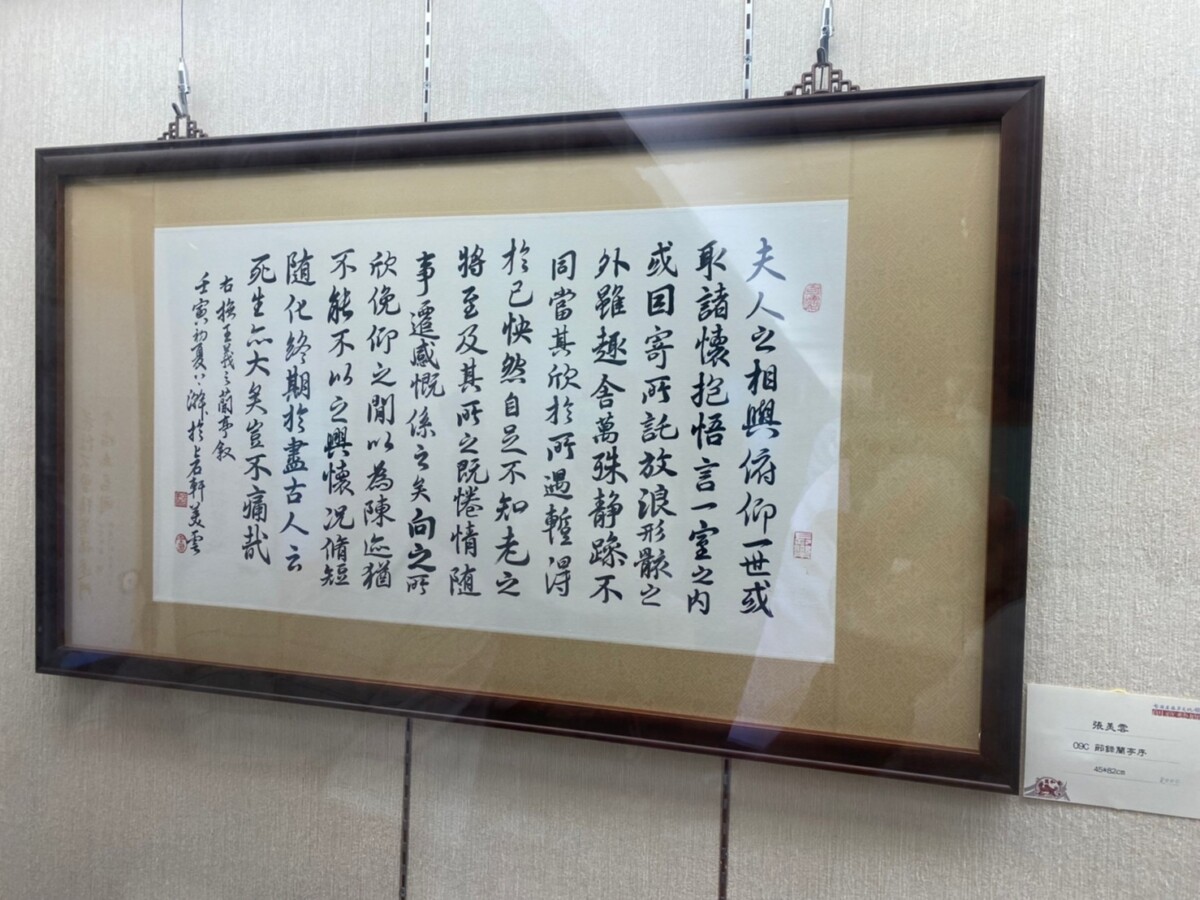 夫人之相與俯仰一世或
取諸懷抱悟言一室之內
或因寄所託放浪形骸之
外雖趣舍萬殊静躁不
同當其欣於所遇暫得
於己怏然自足不知老之
將至及其所之既惓情隨
事遷感慨係之矣向之所
欣俛仰之閒以為陳迹猶
不能不以之興懷況脩短
隨化終期於盡古人云
死生亦大矣豈不痛哉
右撫王羲之蘭亭叙
壬寅初夏於上石軒美雲
張美雲
09C 節錄蘭亭序
45*82cm